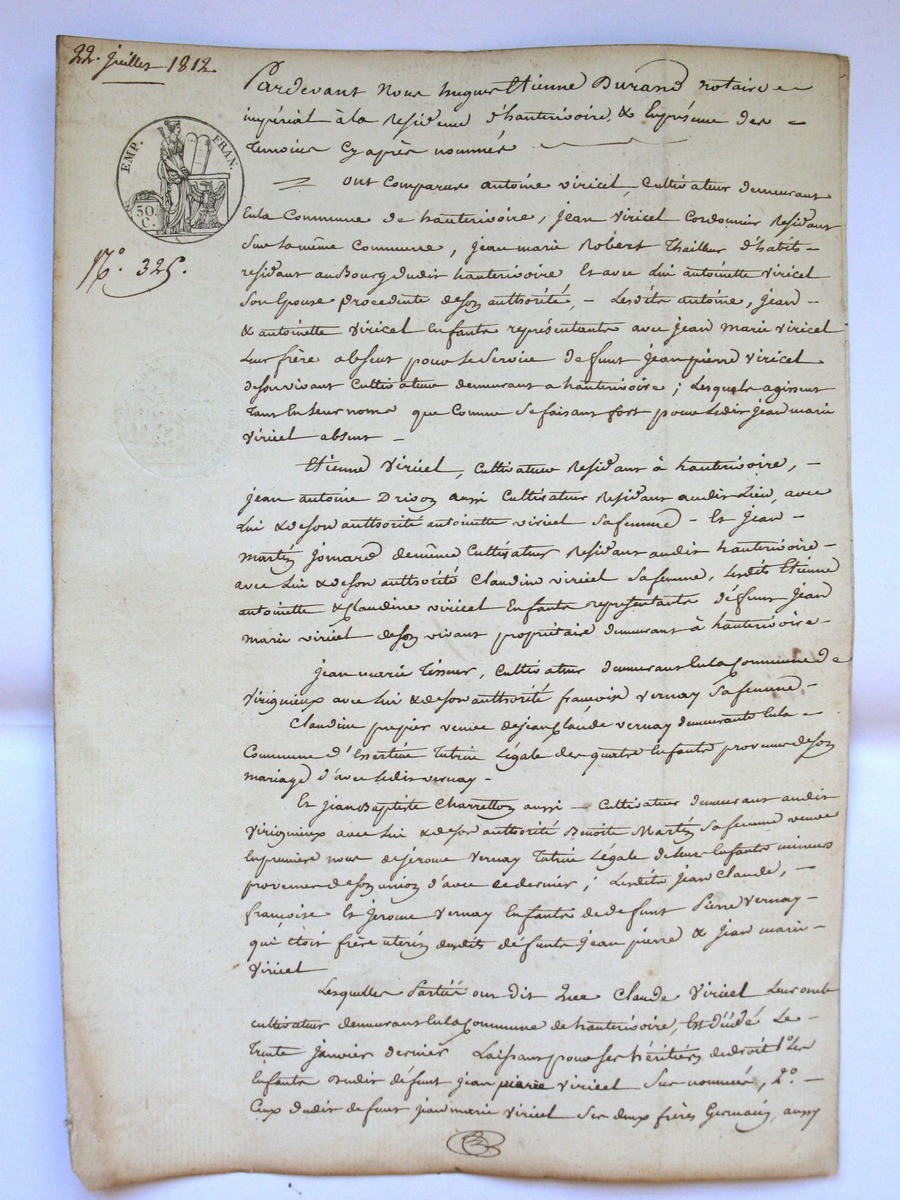 22. juillet 1812
Pardevant Nous hugues Etienne Durand notaire
impérial à la Residence d'hauterivoire, & En présence des
temoins Cy après nommés
EMP. FRAN.
50. C.
N.o 325.
ont Comparus antoine viricel, Cultivateur demeurant
En la Commune de hauterivoire, jean Viricel Cordonnier Residant
Sur la même Commune, jean marie Robert Thailleur d'habits
residant au Bourg dudit hauterivoire Et avec Lui antoinette Viricel
Son Epouse procedente de son authorité, - Lesdits antoine, jean
& antoinette Viricel Enfants représentants avec jean Marie Viricel
Leur frère absent pour le Service defunt jean pierre Viricel
de son vivant Cultivateur demeurant a hauterivoire; Lesquels agissent
tant En leur noms que Comme Se faisant fort pour Ledit jean marie
Viricel absent -
Etienne Viricel, Cultivateur Residant à hauterivoire, -
jean antoine Drivon aussi Cultivateur Residant audit Lieu, avec
Lui & de son authorité antoinette viricel Sa femme - Et jean -
Martin jomard de même Cultivateur Residant audit hauterivoire -
avec Lui & de son authorité Claudine viricel Sa femme, Lesdits Etienne
antoinette & Claudine viricel Enfants représentants défunt jean
Marie viricel de son vivant propriétaire demeurant à hauterivoire -
jean marie Tisseur, Cultivateur demeurant En la Commune de
Virigneux avec Lui & de son authorité françoise Vernay Sa femme -
Claudine veuve de jean Claude vernay demeurante En la -
Commune d'Essertine Tutrice Légale des quatre Enfants provenus de son
mariage d'avec Ledit vernay -
Et jean Baptiste Charretton aussi - Cultivateur demeurant audit
Virigneux avec Lui & de son authorité Benoite Martin Sa femme veuve
En premier de jerome Vernay Tutrice Légale de leurs Enfants mineurs
provenus de son union d'avec ce dernier; Lesdits jean Claude, -
françoise Et jerome Vernay Enfants de defunt Pierre Vernay -
qui étoit frère uterin desdits défunts jean pierre & jean marie -
Viricel
Lesquelles Parties ont Dit Que Claude Viricel Leur oncle
cultivateur demeurant En la Commune de hauterivoire, Est décédé Le -
Trente janvier dernier Laissant pour ses héritiers de droit 1.o Les
Enfants dudit défunt jean pierre viricel Sus nommés, 2.o -
Ceux dudit defunt jean marie Viricel Ses deux frères Germains, aussi